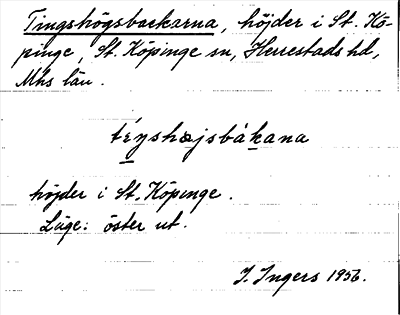 Tingshögsbackarna, höjder i St. Kö-
pinge, St. Köpinge sn, Herrestads hd,
Mhs län.
téŋshøjsbákana
höjder i St. Köpinge.
Läge: öster ut.
I. Ingers 1956.